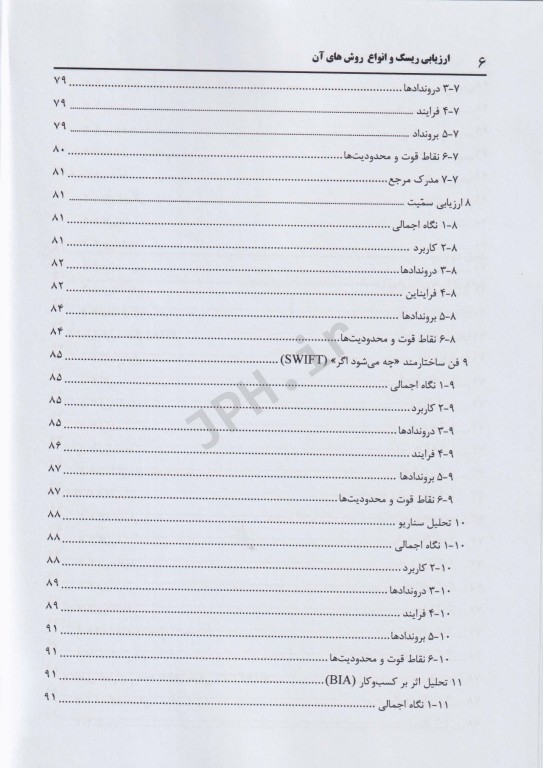 ۶ ارزیابی ریسک و انواع روش های آن
۳-۷ دروندادها ۷۹
۴-۷ فرایند ۷۹
۵-۷ برونداد ۷۹
۶-۷ نقاط قوت و محدودیت‌ها ۸۰
۷-۷ مدرک مرجع ۸۱
۸ ارزیابی سمّیت ۸۱
۱-۸ نگاه اجمالی ۸۱
۲-۸ کاربرد ۸۱
۳-۸ دروندادها ۸۲
۴-۸ فرایناین ۸۲
۵-۸ بروندادها ۸۴
۶-۸ نقاط قوت و محدودیت‌ها ۸۴
۹ فن ساختارمند «چه می‌شود اگر» (SWIFT) ۸۵
۱-۹ نگاه اجمالی ۸۵
۲-۹ کاربرد ۸۵
۳-۹ دروندادها ۸۵
۴-۹ فرایند ۸۶
۵-۹ بروندادها ۸۷
۶-۹ نقاط قوت و محدودیت‌ها ۸۷
۱۰ تحلیل سناریو ۸۸
۱-۱۰ نگاه اجمالی ۸۸
۲-۱۰ کاربرد ۸۸
۳-۱۰ دروندادها ۸۹
۴-۱۰ فرایند ۸۹
۵-۱۰ بروندادها ۹۱
۶-۱۰ نقاط قوت و محدودیت‌ها ۹۱
۱۱ تحلیل اثر بر کسب‌وکار (BIA) ۹۱
۱-۱۱ نگاه اجمالی ۹۱
JPH.ir